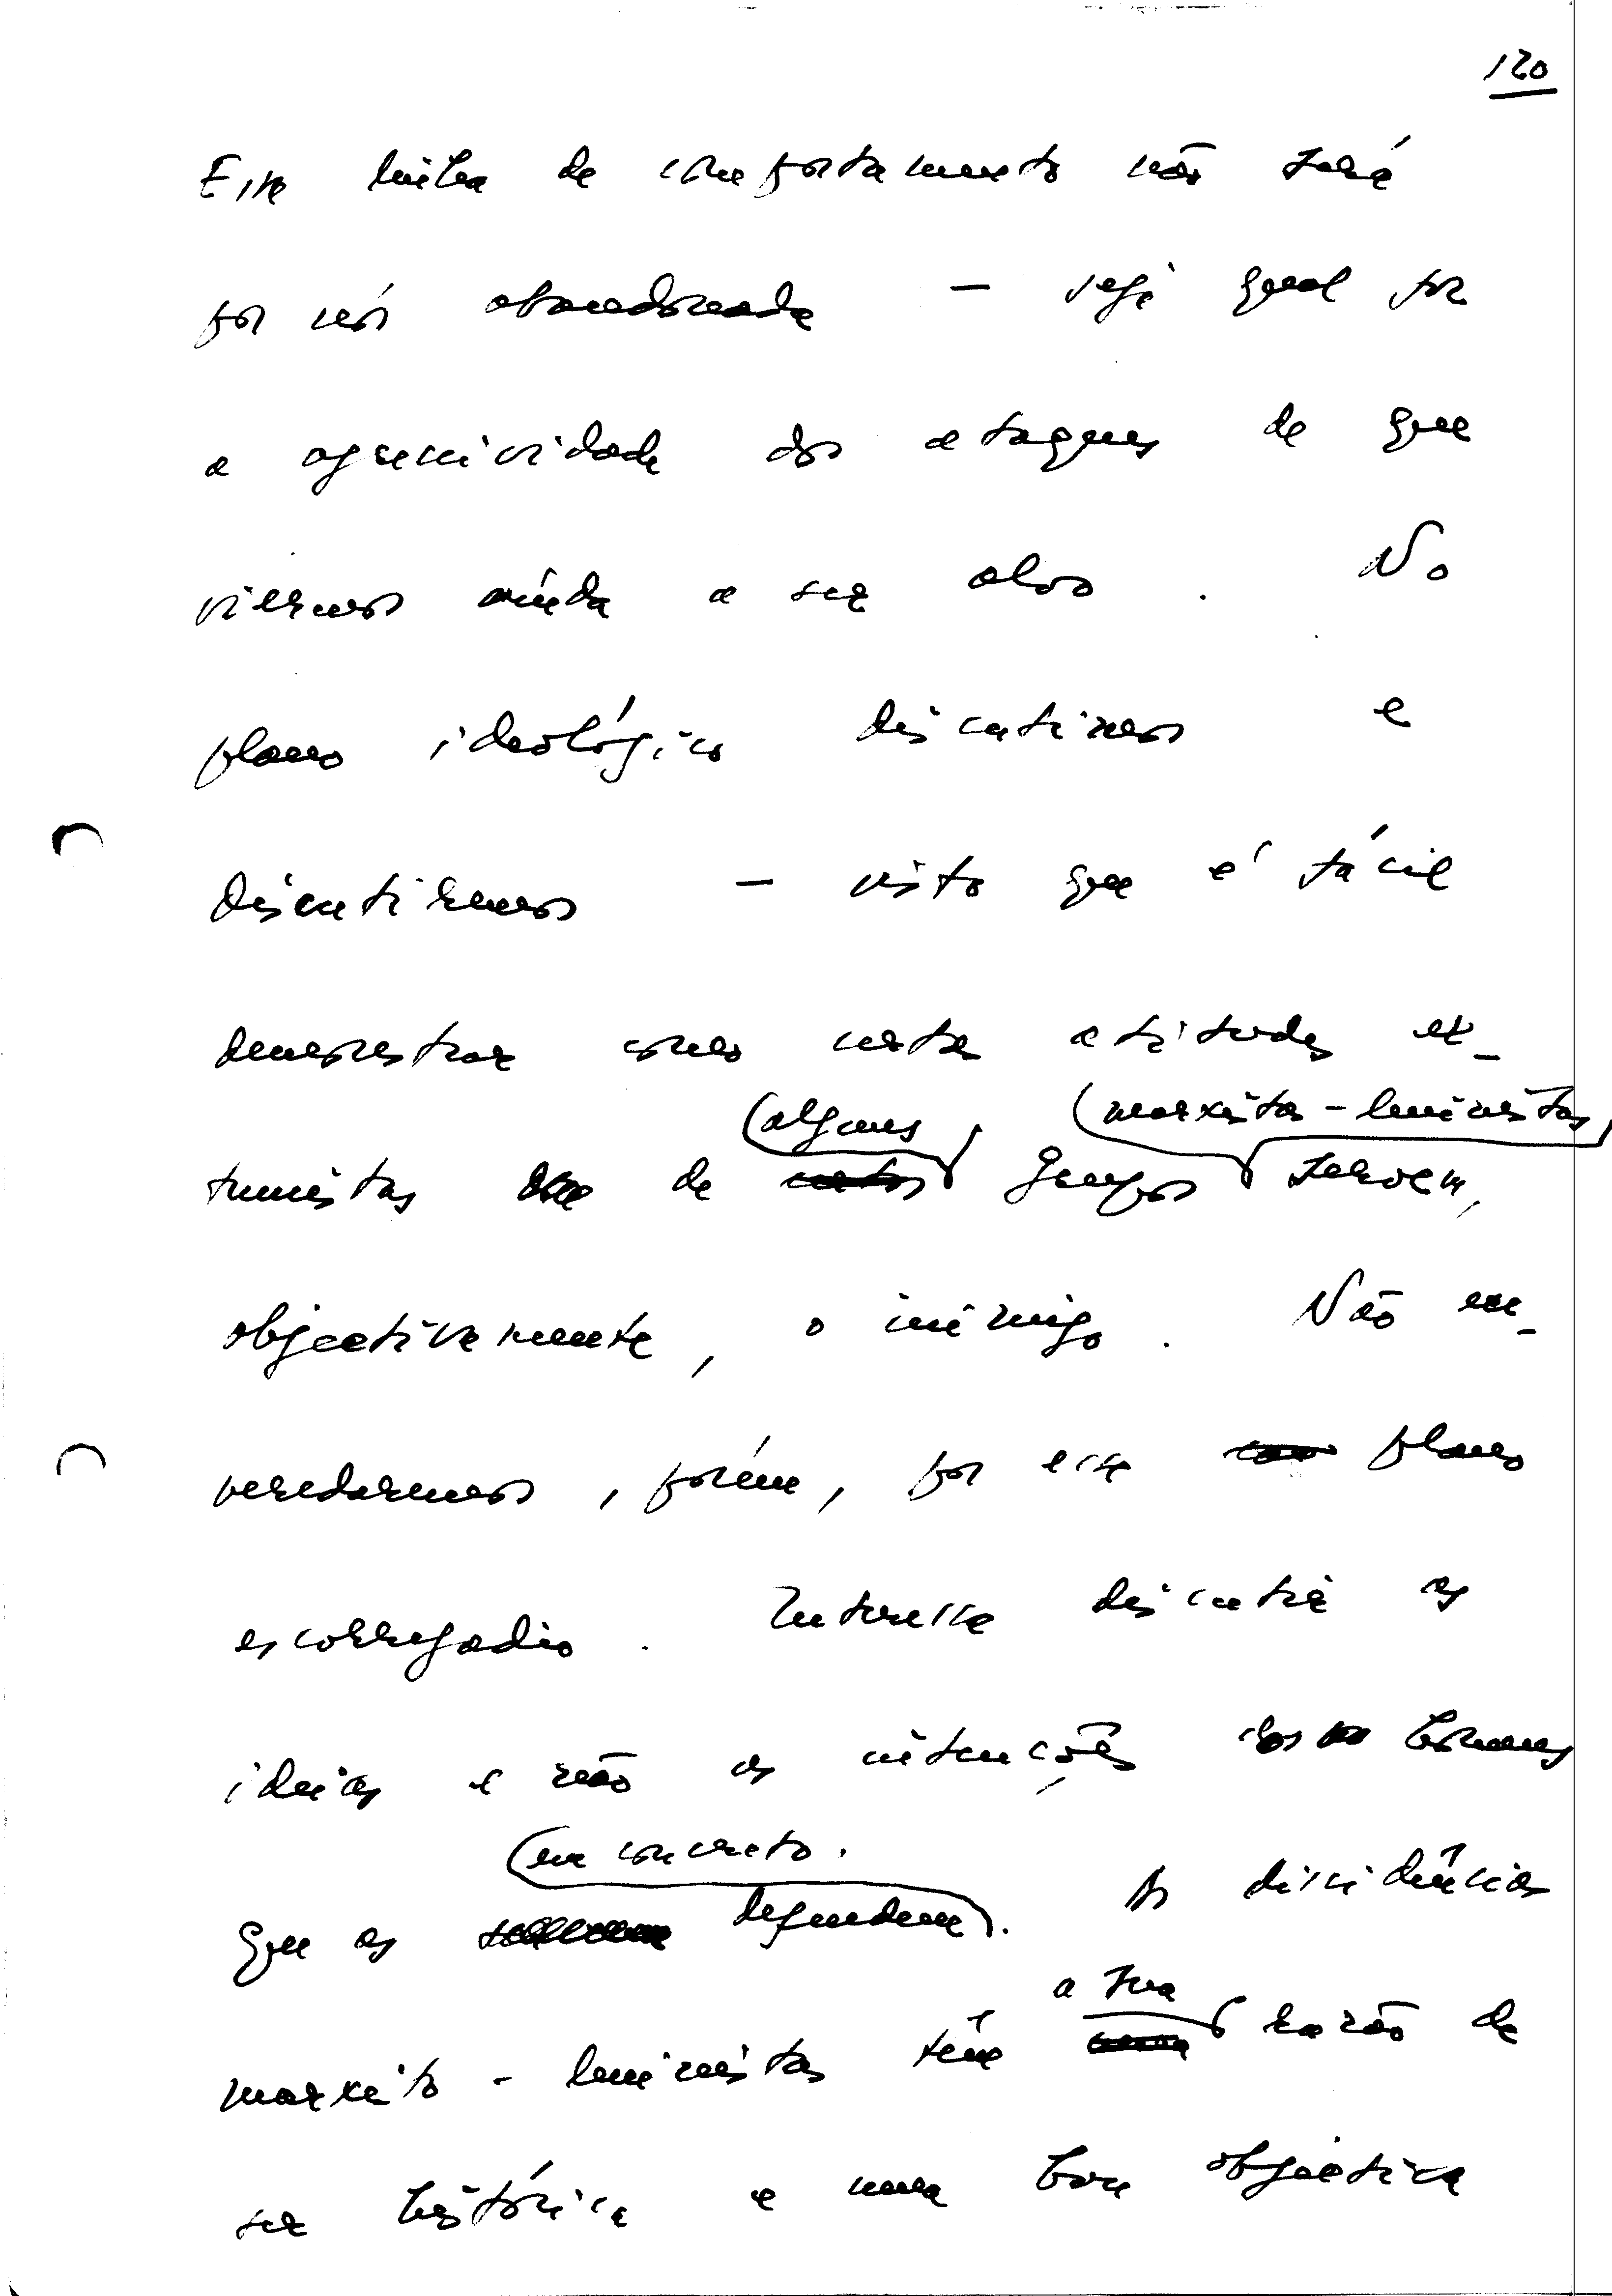 120
Essa linha de comportamento não será
por nós abandonada — seja qual for
a agressividade dos ataques de que
viermos ainda a ser alvo. No
plano ideológico discutimos e
discutiremos — visto que é fácil
demonstrar como certas atitudes ex-
(alguns (marxistas-leninistas
tremistas de grupos servem,
objectivamente, o inimigo. Não en-
veredaremos, porém, por esse plano
escorregadio. Interessa discutir as
ideias e não as intenções dos homens
(em concreto.
que as defendem). As dissidências
a sua
marxisto-leninistas têm razão de
ser histórica e uma base objectiva